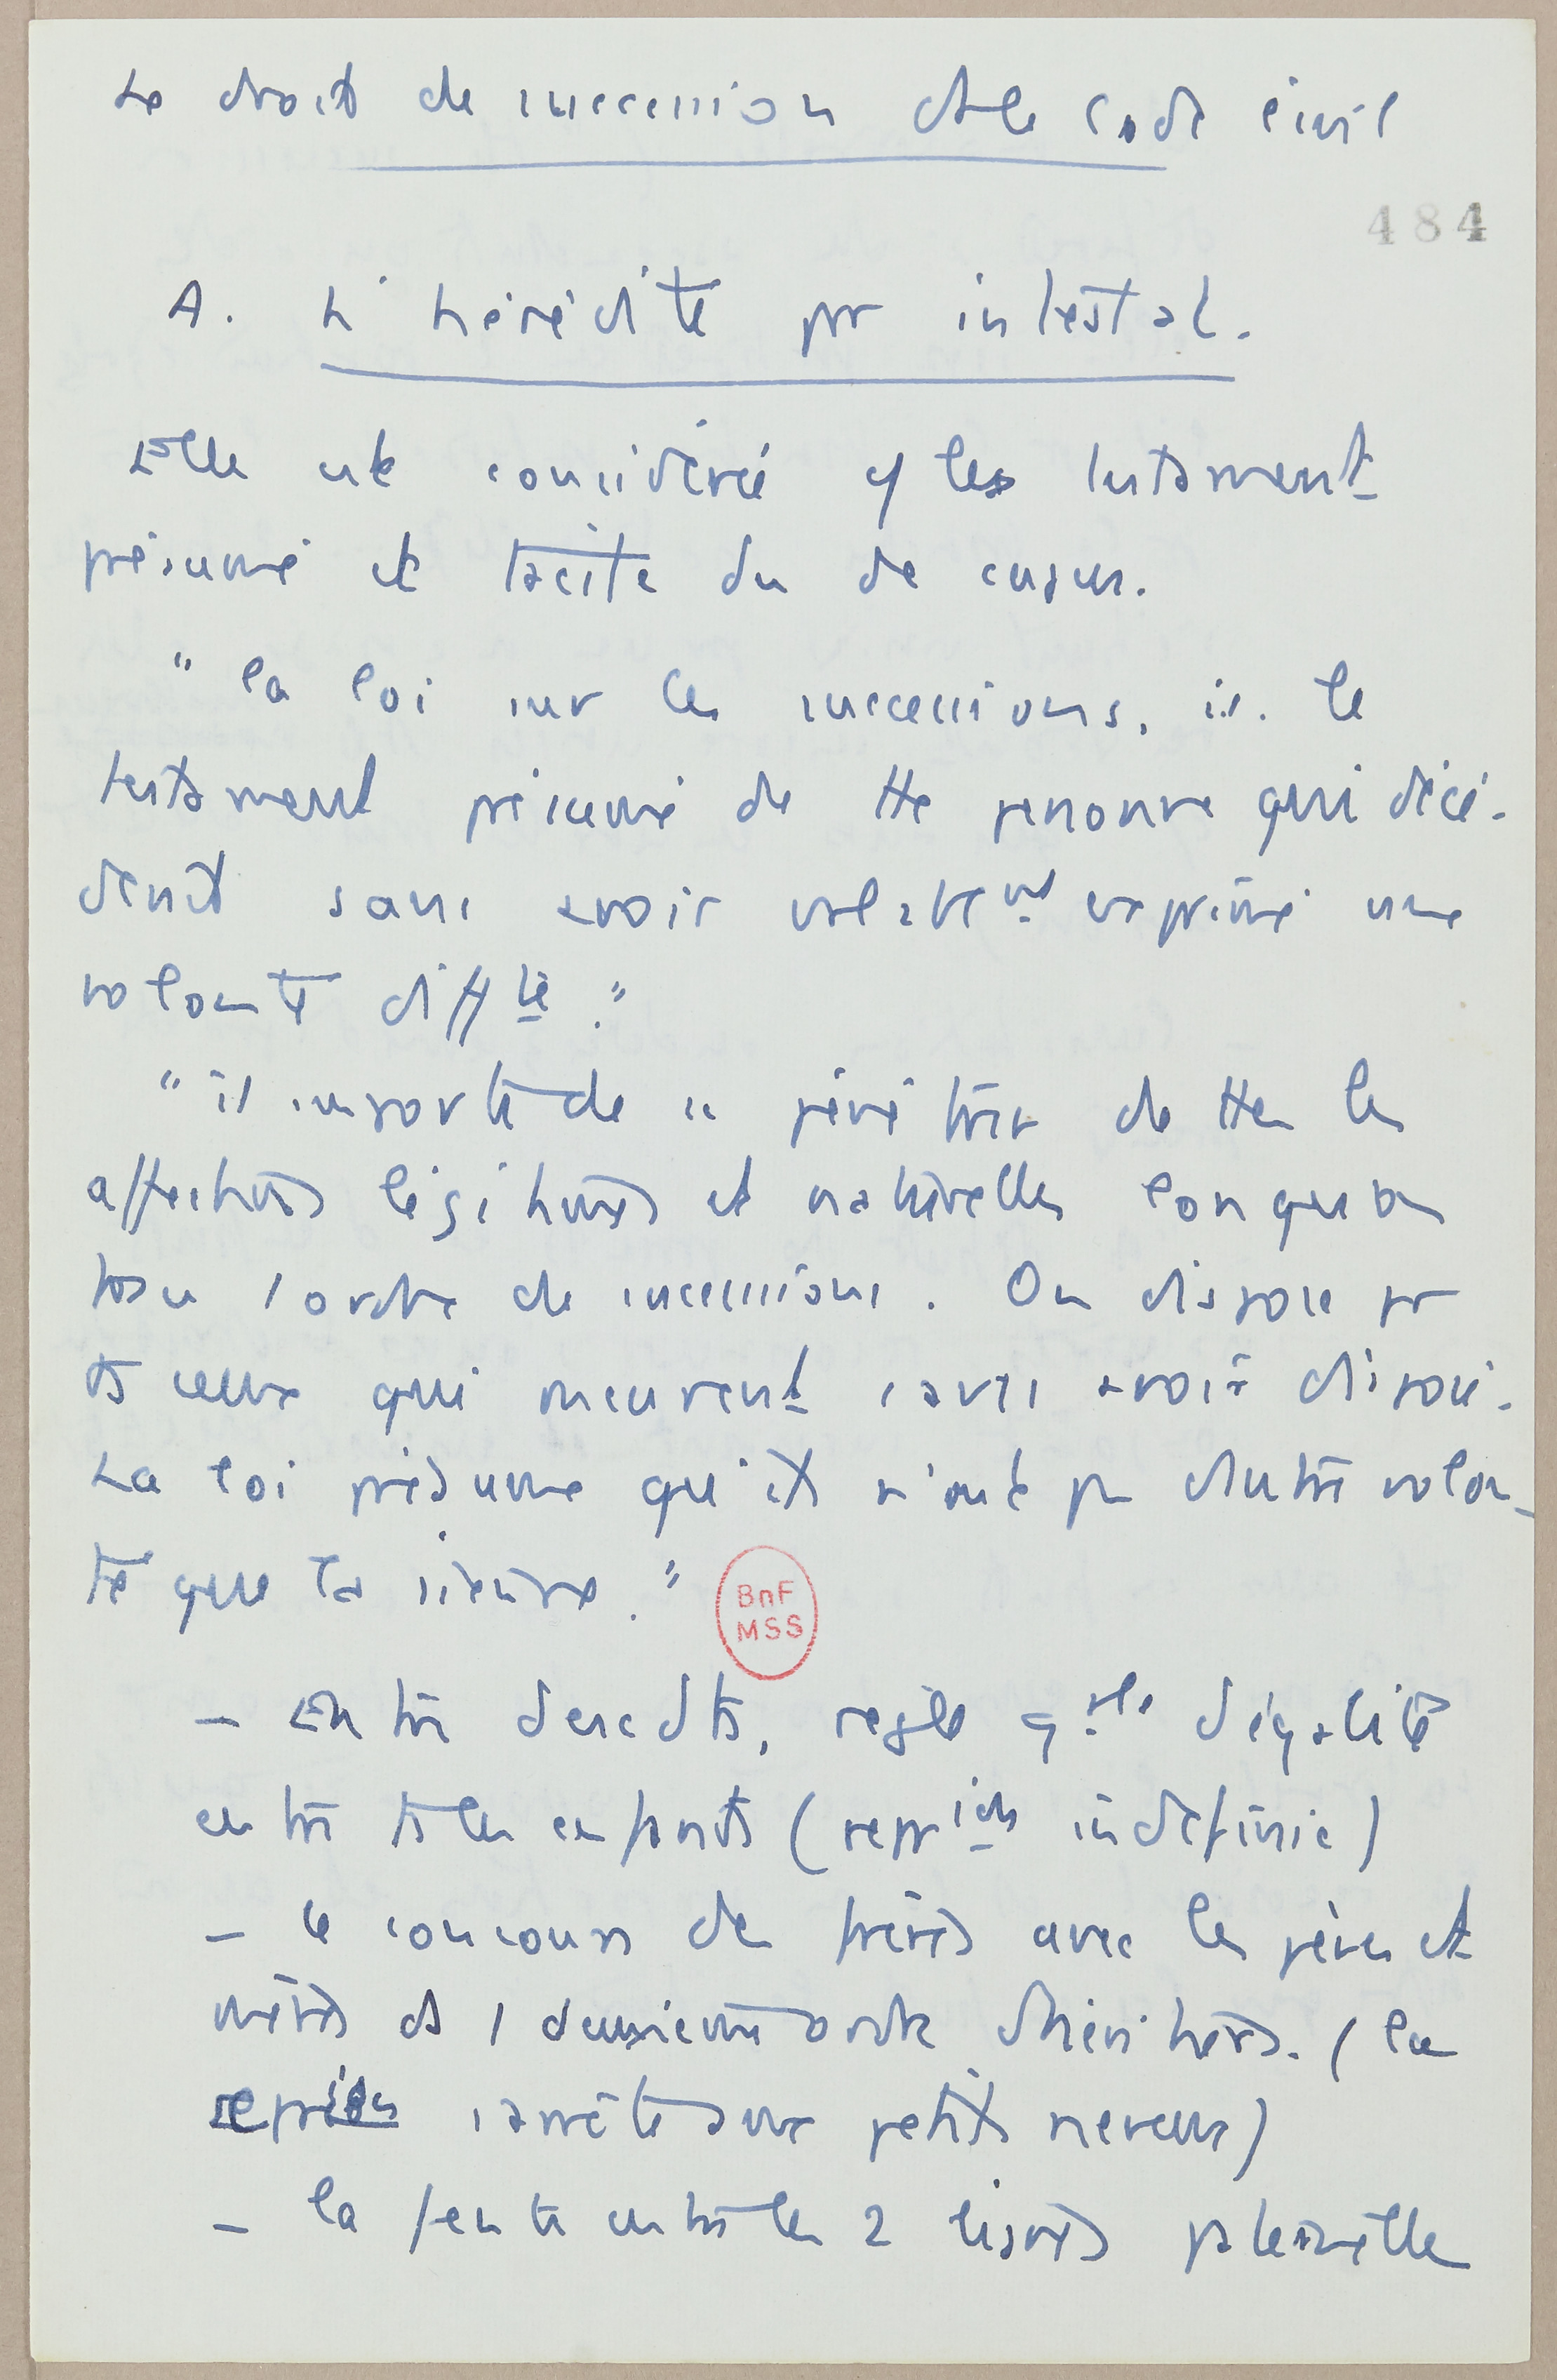 Le droit de succession ds le code civil
484
A. L'hérédité par intestat.
Elle est considérée c/ le testament
présumé et tacite du de cujus.
"la loi sur les successions, is. le
testament présumé de tte personne qui décé-
derait sans avoir valablemt exprimé une
volonté difftе."
"il importe de se pénétrer de ttes les
affections légitimes et naturelles lorsqu'on
trace l'ordre de successions. On dispose pr
ts ceux qui meurent sans avoir disposé.
La loi présume qu'ils n'ont pas d'autre volon-
té que la sienne."
BnF
MSS
– Entre descdts, règle gale d'égalité
entre ts les enfants (reprion indéfinie)
– le concours des frères avec les pères et
mères ds l deuxième ordre d'héritiers. (la
reprion s'arrête aux petits neveux)
– la fente entre les 2 lignes paternelle